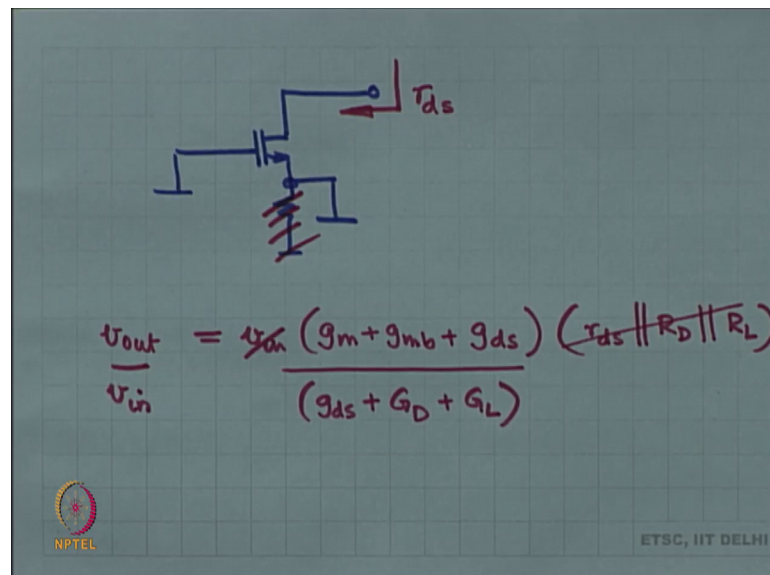 r_ds
v_out / v_in = v_in (g_m + g_mb + g_ds) (r_ds || R_D || R_L)
(g_ds + G_D + G_L)
NPTEL
ETSC, IIT DELHI